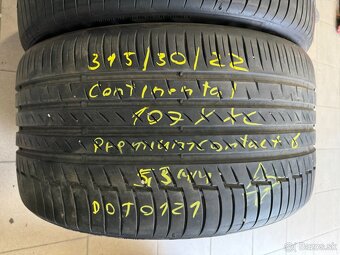 315/30/22
Continental
107 Y XL
Premiumcontact 6
5,5mm
DOT0121
Bazos.sk